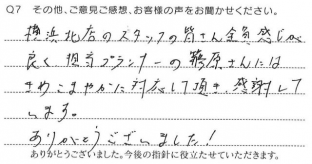 Q7 その他、ご意見ご感想、お客様の声をお聞かせください。
横浜北店のスタッフの皆さん全員感じが
良く、担当プランナーの藤原さんには
きめこまやかに対応して頂き、感謝して
います。
ありがとうございました!
ありがとうございました。今後の指針に役立たせていただきます。